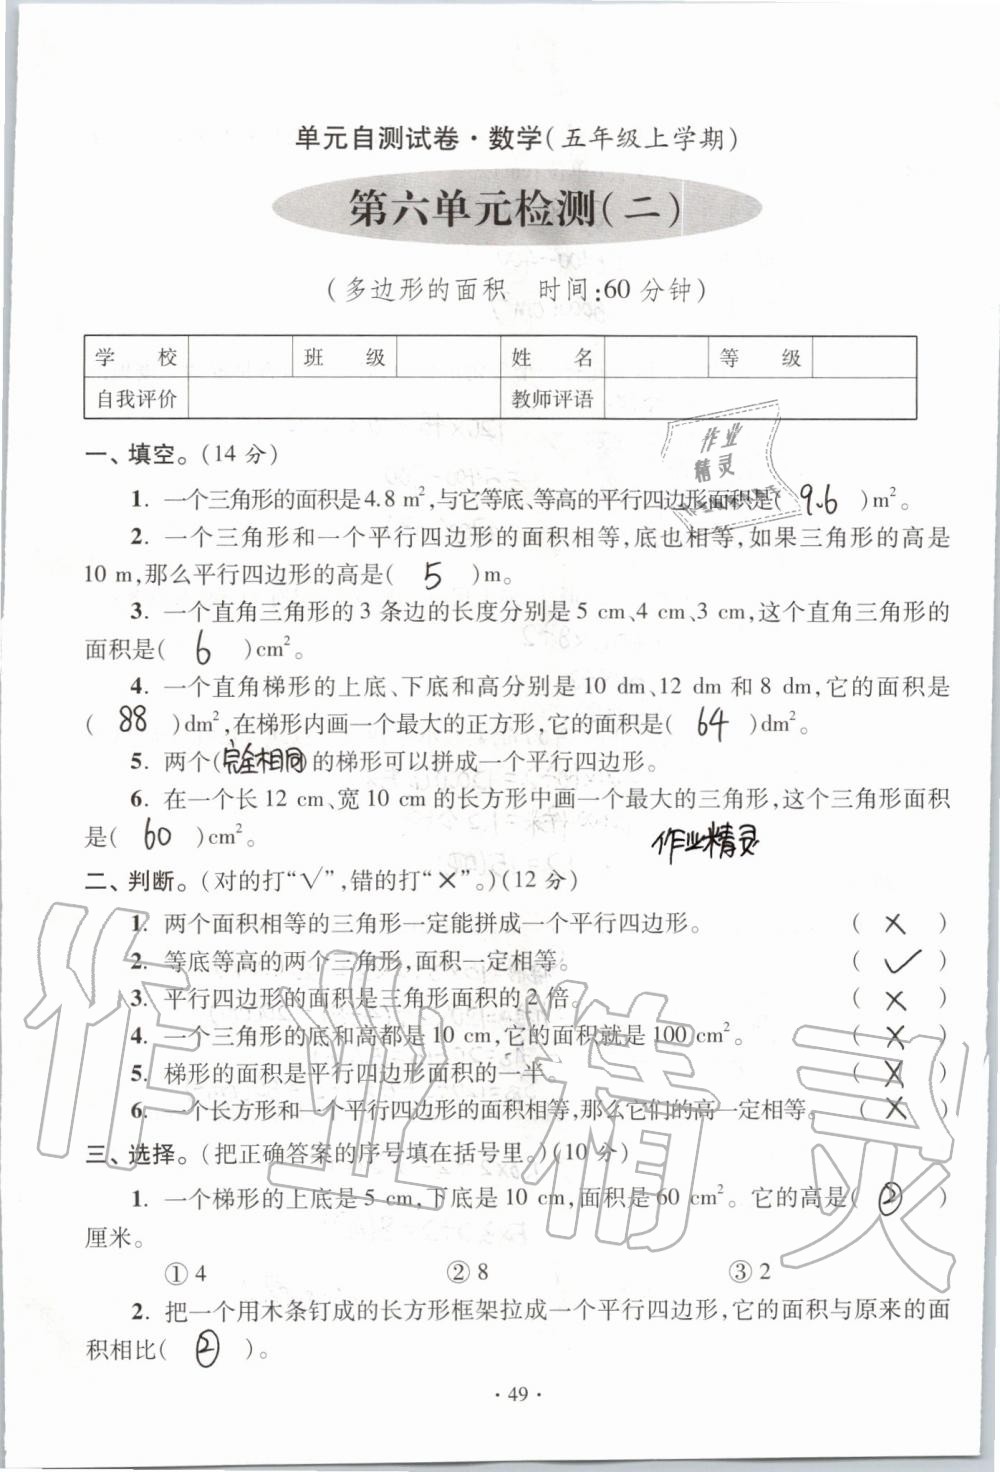 单元自测试卷·数学(五年级上学期)
第六单元检测(二)
(多边形的面积 时间:60分钟)
学 校 班 级 姓 名 等 级
自我评价 教师评语
一、填空。(14分)
作业
精灵
1. 一个三角形的面积是4.8 m²,与它等底、等高的平行四边形面积是( 9.6 )m²。
2. 一个三角形和一个平行四边形的面积相等,底也相等,如果三角形的高是
10 m,那么平行四边形的高是( 5 )m。
3. 一个直角三角形的3条边的长度分别是5 cm、4 cm、3 cm,这个直角三角形的
面积是( 6 )cm²。
4. 一个直角梯形的上底、下底和高分别是10 dm、12 dm和8 dm,它的面积是
( 88 )dm²,在梯形内画一个最大的正方形,它的面积是( 64 )dm²。
5. 两个(完全相同)的梯形可以拼成一个平行四边形。
6. 在一个长12 cm、宽10 cm的长方形中画一个最大的三角形,这个三角形面积
是( 60 )cm²。
作业精灵
二、判断。(对的打“√”,错的打“×”。)(12分)
1. 两个面积相等的三角形一定能拼成一个平行四边形。 ( × )
2. 等底等高的两个三角形,面积一定相等。 ( ✓ )
3. 平行四边形的面积是三角形面积的2倍。 ( × )
4. 一个三角形的底和高都是10 cm,它的面积就是100 cm²。 ( × )
5. 梯形的面积是平行四边形面积的一半。 ( × )
6. 一个长方形和一个平行四边形的面积相等,那么它们的高一定相等。 ( × )
作业精灵
三、选择。(把正确答案的序号填在括号里。)(10分)
1. 一个梯形的上底是5 cm,下底是10 cm,面积是60 cm²。它的高是( ② )
厘米。
①4 ②8 ③2
2. 把一个用木条钉成的长方形框架拉成一个平行四边形,它的面积与原来的面
积相比( ② )。
·49·